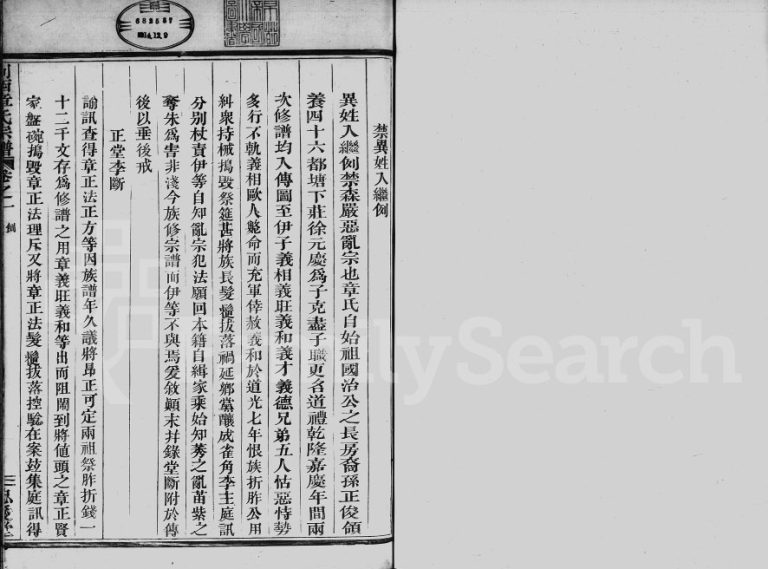 禁異姓入繼例
異姓入繼例禁森嚴惡亂宗也章氏自始祖國治公之長房裔孫正俊領
養四十六都塘下莊徐元慶爲子克盡子職更名道禮乾隆嘉慶年間兩
次修譜均入傳圖至伊子義相義旺義和義才義德兄弟五人怙惡恃勢
多行不軌義相歐人斃命而充軍倖赦義和於道光七年恨族折胙公用
糾衆持械搗毀祭筵甚將族長髮辮拔落禍延鄉黨釀成雀角李主庭訊
分別杖責伊等自知亂宗犯法願回本籍自緝家乘始知莠之亂苗紫之
奪朱爲害非淺今族修宗譜而伊等不與焉爰敘顛末幷錄堂斷附於傳
後以垂後戒
正堂李斷
諭訊查得章正法正方等因族譜年久議將昂正可定兩祖祭胙折錢一
十二千文存爲修譜之用章義旺義和等出而阻鬧到將值頭之章正賢
家盤碗搗毀章正法理斥又將章正法髮辮拔落控驗在案玆集庭訊得
西章氏宗譜 卷之一 例
682567
2014.12.9
FamilySearch